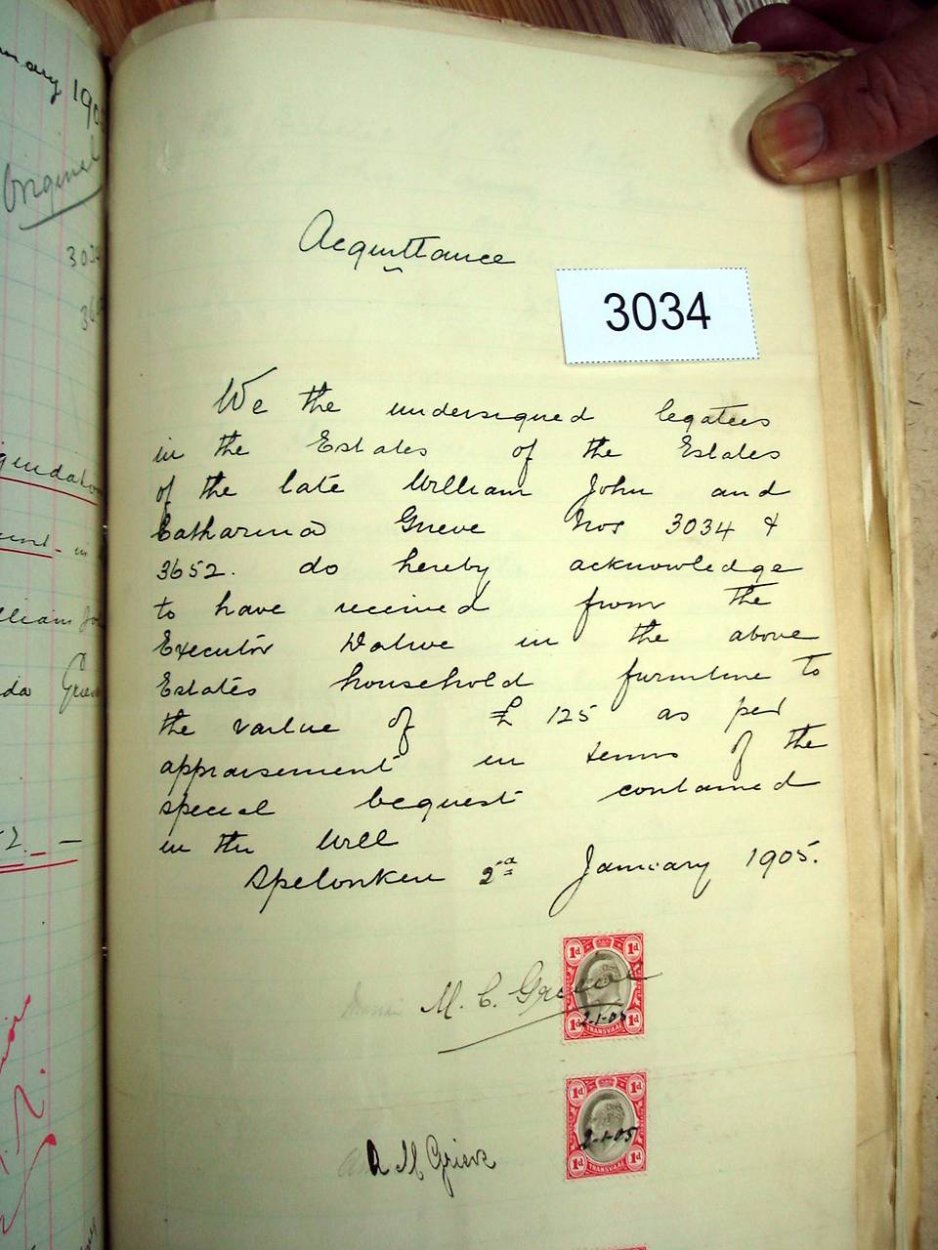 Acquittance
3034
We the undersigned legatees
in the Estates of the Estates
of the late William John and
Catharina Grieve Nos 3034 &
3652. do hereby acknowledge
to have received from the
Executór Dative in the above
Estates household furniture to
the value of £ 125 as per
appraisement in terms of the
special bequest contained
in the Will
Spelonken 2d January 1905.
M. C. Grieve
1d 1d
2-1-05
1d 1d
TRANSVAAL
A M Grieve
1d 1d
2-1-05
1d 1d
TRANSVAAL
Original